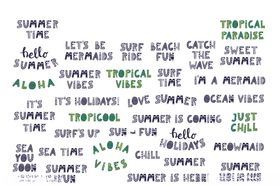 SUMMER
TIME
TROPICAL
PARADISE
hello
SUMMER
LET'S BE
MERMAIDS
SURF
RIDE
BEACH
FUN
CATCH
THE
WAVE
SWEET
SUMMER
ALOHA
SUMMER
VIBES
TROPICAL
VIBES
SURF
TIME
I'M A MERMAID
IT'S
SUMMER
IT'S HOLIDAYS!
LOVE SUMMER
OCEAN VIBES
TROPICOOL
SUMMER IS COMING
JUST
CHILL
SURF'S UP
SUN - FUN
hello
HOLIDAYS
SEA
YOU
SOON
SEA TIME
ALOHA
VIBES
CHILL
SUMMER
MEOWMAID
SUMMER
SUMMER
FUN
SUMMER IS HERE
SUN